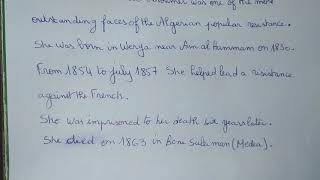 was one of the most
outstanding faces of the Algerian popular resistance.
She was born in Werja near Ain al Hammam on 1830.
From 1854 to July 1857 She helped lead a resistance
against the French.
She was imprisoned to her death six years later.
She died on 1863 in Beni Suliman (Medea).